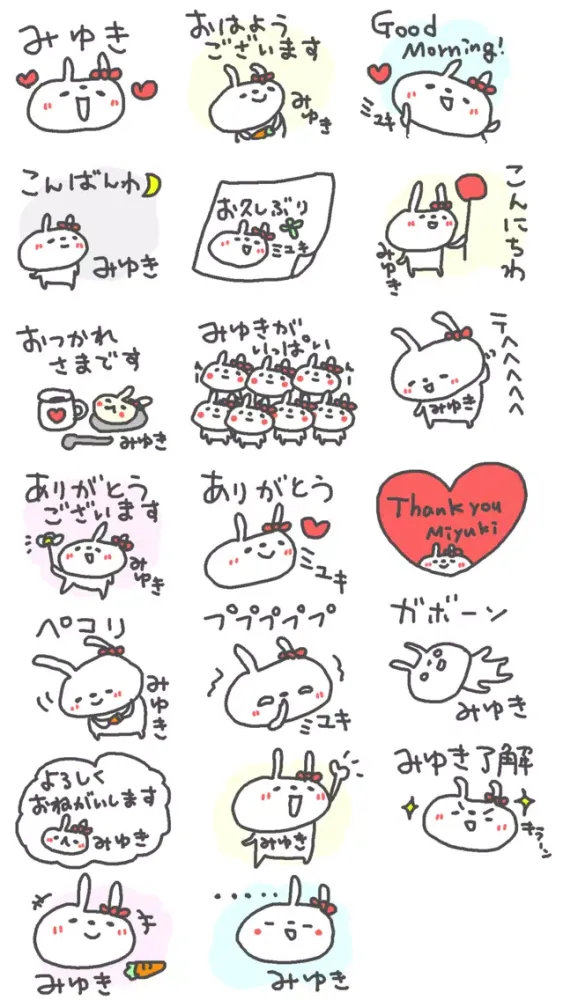 みゆき
おはよう
ございます
みゆき
Good
Morning!
ミユキ
こんばんわ
みゆき
お久しぶり
ミユキ
こんにちわ
みゆき
おつかれ
さまです
みゆき
みゆきが
いっぱい
テヘヘヘヘヘ
みゆき
ありがとう
ございます
みゆき
ありがとう
ミユキ
Thank you
Miyuki
ペコリ
みゆき
プププププ
ミユキ
ガボーン
みゆき
よろしく
おねがいします
みゆき
みゆき
みゆき了解
キラーン
みゆき
・・・・・・
みゆき